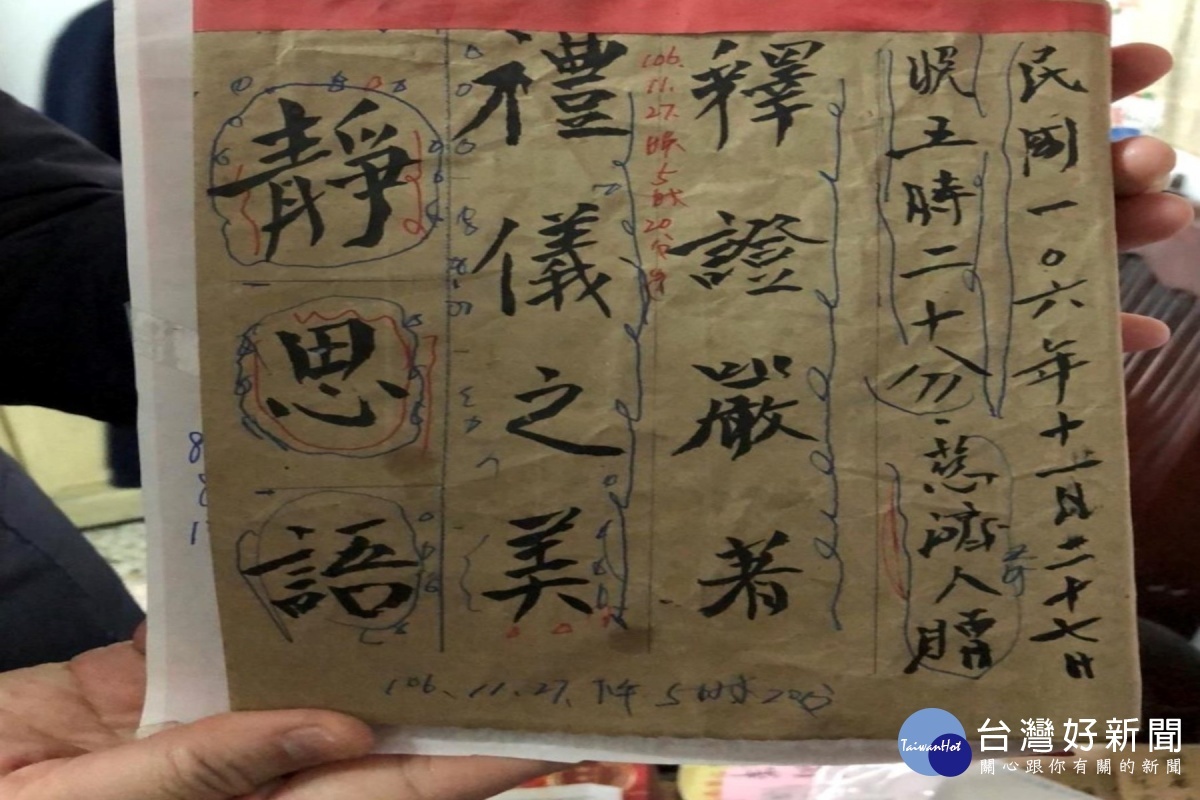 民國一〇六年十一月二十七日
晚五時二十分、慈濟人贈
釋證嚴著
106.11.27.晚5時20分
禮儀之美
靜思語
106.11.27.下午5時20分
台灣好新聞
TaiwanHot
關心跟你有關的新聞